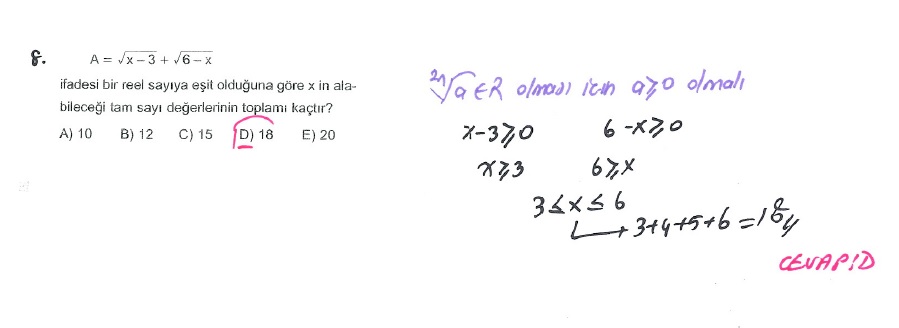 8.
A = √x – 3 + √6 – x
ifadesi bir reel sayıya eşit olduğuna göre x in ala-
bileceği tam sayı değerlerinin toplamı kaçtır?
A) 10 B) 12 C) 15 D) 18 E) 20
²ⁿ√a ∈ R olması için a ≥ 0 olmalı
x-3 ≥ 0 6 -x ≥ 0
x ≥ 3 6 ≥ x
3 ≤ x ≤ 6
3+4+5+6 = 18//
CEVAP:D